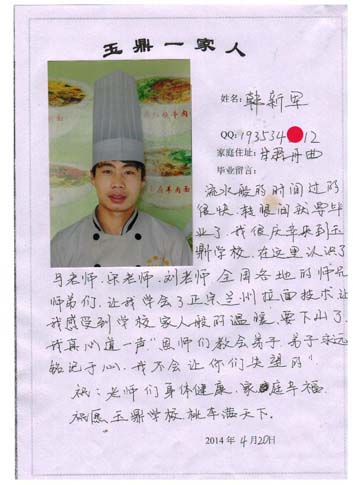 玉鼎一家人
姓名：韩新军
QQ：193534 12
家庭住址：甘肃舟曲
毕业留言：
流水般的时间过的
很快，转眼间就要毕
业了。我很庆幸来到玉
鼎学校，在这里认识了
马老师，宋老师，刘老师，全国各地的师兄
师弟们，让我学会了正宗兰州拉面技术，让
我感受到学校家人般的温暖，要下山了，
我真心道一声"恩师们教会弟子，弟子永远
铭记于心，我不会让你们失望的"
祝：老师们身体健康，家庭幸福
祝愿玉鼎学校桃李满天下。
2014年4月20日